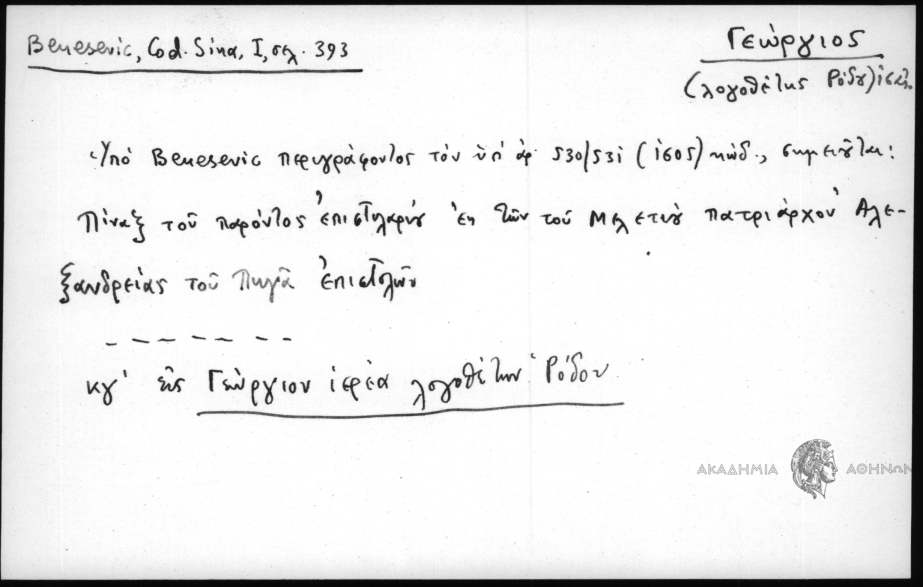 Benesevic, Cod. Sina, I, σελ. 393
Γεώργιος
(λογοθέτης Ρόδου)
Ὑπό Benesevic περιγράφοντος τόν ὑπ' ἀρ. 530/531 (ισοσ) κώδ., σημειοῦται:
Πίναξ τοῦ παρόντος ἐπιστολαρίου ἐκ τῶν τοῦ Μελετίου πατριάρχου Αλε-
ξανδρείας τοῦ Πηγᾶ ἐπιστολῶν
— — — — — —
κγ' εἰς Γεώργιον ἱερέα λογοθέτην Ρόδου
ΑΚΑΔΗΜΙΑ ΑΘΗΝΩΝ